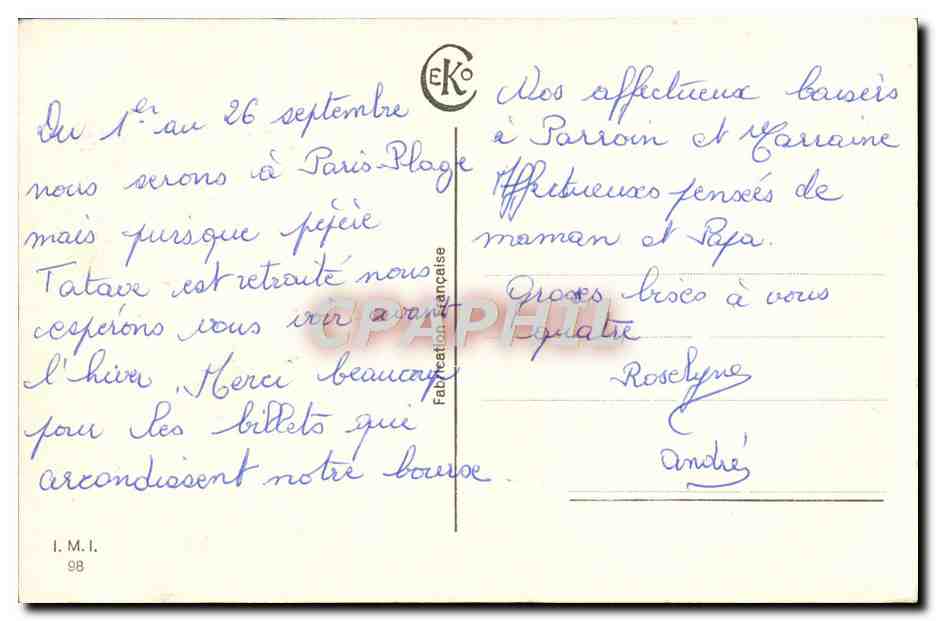 Du 1er au 26 septembre
nous serons à Paris-Plage
mais puisque pépére
Tatave est retraité nous
espérons vous voir avant
l'hiver. Merci beaucoup
pour les billets qui
arrondissent notre bourse.
I. M. I.
98
CEKO
Fabrication Française
Nos affectueux baisers
à Parroin et Marraine
Affectueuses pensées de
maman et Papa.
Grosses bises à vous
quatre
Roselyne
André
CPAPHIL